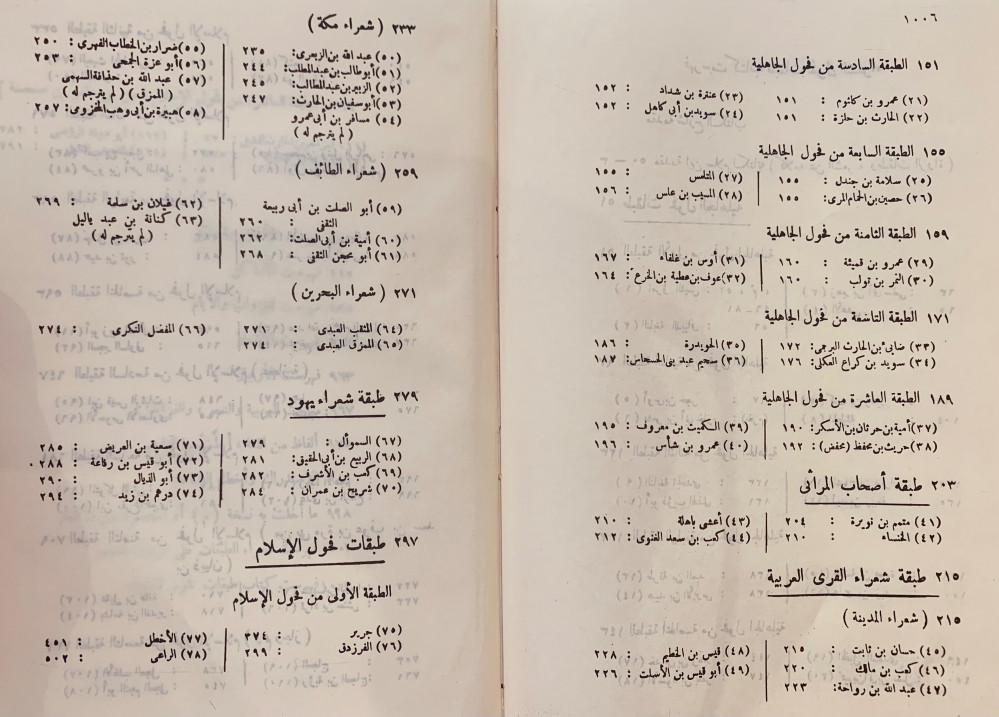 ١٠٠٦
١٥١ الطبقة السادسة من فحول الجاهلية
(٢١) عمرو بن كلثوم : ١٥١
(٢٢) الحارث بن حلزة : ١٥١
(٢٣) عنترة بن شداد : ١٥٢
(٢٤) سويد بن أبى كاهل : ١٥٢
١٥٥ الطبقة السابعة من فحول الجاهلية
(٢٥) سلامة بن جندل : ١٥٥
(٢٦) حصين بن الحمام المرى: ١٥٥
(٢٧) المتلمس : ١٥٥
(٢٨) المسيب بن علس : ١٥٦
١٥٩ الطبقة الثامنة من فحول الجاهلية
(٢٩) عمرو بن قميئة : ١٦٠
(٣٠) النمر بن تولب : ١٦٠
(٣١) أوس بن غلفاء : ١٦٧
(٣٢) عوف بن عطية بن الخرع: ١٦٤
١٧١ الطبقة التاسعة من فحول الجاهلية
(٣٣) ضابئ بن الحارث البرجمى: ١٧٢
(٣٤) سويد بن كراع العكلى: ١٧٦
(٣٥) الحويدرة : ١٨٦
(٣٦) سحيم عبد بنى الحسحاس: ١٨٧
١٨٩ الطبقة العاشرة من فحول الجاهلية
(٣٧) أمية بن حرثان بن الأسكر: ١٩٠
(٣٨) حريث بن محفظ (محفض) : ١٩٢
(٣٩) الكميت بن معروف : ١٩٥
(٤٠) عمرو بن شأس : ١٩٦
٢٠٣ طبقة أصحاب المراثى
(٤١) متمم بن نويرة : ٢٠٤
(٤٢) الخنساء : ٢١٠
(٤٣) أعشى باهلة : ٢١٠
(٤٤) كعب بن سعد الغنوى : ٢١٢
٢١٥ طبقة شعراء القرى العربية
٢١٥ ( شعراء المدينة )
(٤٥) حسان بن ثابت : ٢١٥
(٤٦) كعب بن مالك : ٢٢٠
(٤٧) عبد الله بن رواحة: ٢٢٣
(٤٨) قيس بن الخطيم : ٢٢٨
(٤٩) أبو قيس بن الأسلت : ٢٢٦
٢٣٣ ( شعراء مكة )
(٥٠) عبد الله بن الزبعرى: ٢٣٥
(٥١) أبو طالب بن عبد المطلب: ٢٤٤
(٥٢) الزبير بن عبد المطلب: ٢٤٥
(٥٣) أبو سفيان بن الحارث: ٢٤٧
(٥٤) مسافر بن أبى عمرو
( لم يترجم له )
(٥٥) ضرار بن الخطاب الفهرى : ٢٥٠
(٥٦) أبو عزة الجمحى : ٢٥٣
(٥٧) عبد الله بن حذافة السهمى
( الممزق ) ( لم يترجم له )
(٥٨) هبيرة بن أبى وهب المخزومى: ٢٥٧
٢٥٩ ( شعراء الطائف )
(٥٩) أبو الصلت بن أبى ربيعة
الثقفى : ٢٦٠
(٦٠) أمية بن أبى الصلت: ٢٦٢
(٦١) أبو محجن الثقفى : ٢٦٨
(٦٢) غيلان بن سلمة : ٢٦٩
(٦٣) كنانة بن عبد ياليل
( لم يترجم له )
٢٧١ ( شعراء البحرين )
(٦٤) المثقب العبدى : ٢٧١
(٦٥) الممزق العبدى : ٢٧٤
(٦٦) المفضل النكرى : ٢٧٤
٢٧٩ طبقة شعراء يهود
(٦٧) السموأل : ٢٧٩
(٦٨) الربيع بن أبى الحقيق: ٢٨١
(٦٩) كعب بن الأشرف : ٢٨٢
(٧٠) شريح بن عمران : ٢٨٤
(٧١) سعية بن العريض : ٢٨٥
(٧٢) أبو قيس بن رفاعة : ٢٨٨
(٧٣) أبو الذيال : ٢٩٠
(٧٤) درهم بن زيد : ٢٩٤
٢٩٧ طبقات فحول الإسلام
الطبقة الأولى من فحول الإسلام
(٧٥) جرير : ٣٧٤
(٧٦) الفرزدق : ٢٩٩
(٧٧) الأخطل : ٤٥١
(٧٨) الراعى : ٥٠٢